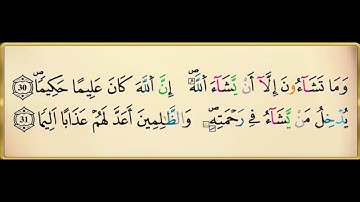 وَمَا تَشَآءُونَ إِلَّآ أَنْ يَّشَآءَ ٱللَّهُ ۚ إِنَّ ٱللَّهَ كَانَ عَلِيمًا حَكِيمًا ۖ 30
يُدْخِلُ مَنْ يَّشَآءُ فِي رَحْمَتِهِ ۚ وَالظَّٰلِمِينَ أَعَدَّ لَهُمْ عَذَابًا أَلِيمًا 31